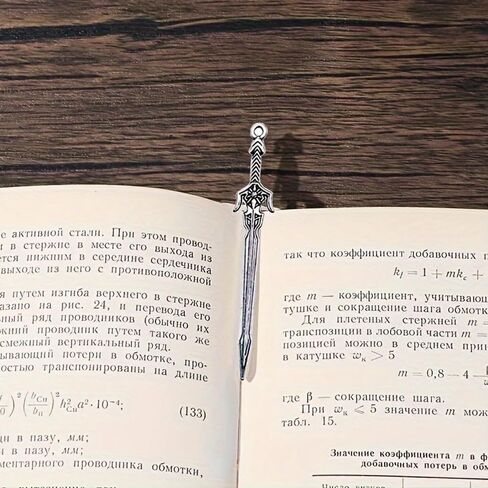 е активной стали. При этом провод-
и в стержне в месте его выхода из
ется нижним в середине сердечника
выходе из него с противоположной
я путем изгиба верхнего в стержне
казано на рис. 24, и перевода его
ьный ряд проводников (обычно их
жний проводник путем такого же
смежный вертикальный ряд.
ывающий потери в обмотке, про-
остью транспонированы на длине
)² (bСп / bп)² h²Сп a² · 10⁻⁴; (133)
ди в пазу, мм;
и в пазу, мм;
ментарного проводника обмотки,
так что коэффициент добавочных п
kf = 1 + mkс +
где m — коэффициент, учитывающ
тушке и сокращение шага обмотк
Для плетеных стержней m =
транспозиции в лобовой части m =
позицией можно в среднем прин
в катушке wк > 5
m = 0,8 — 4
где β — сокращение шага.
При wк ⩽ 5 значение m мож
табл. 15.
Значение коэффициента m в ф
добавочных потерь в обм
Число витков